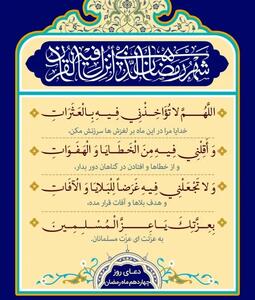 شهر رمضان الذي أنزل فيه القرآن
اللَّهُمَّ لا تُؤَاخِذْنِي فِيهِ بِالْعَثَرَاتِ
خدایا مرا در این ماه بر لغزش ها سرزنش مکن،
وَ أَقِلْنِي فِيهِ مِنَ الْخَطَايَا وَ الْهَفَوَاتِ
و از خطاها و افتادن در گناهان دور بدار،
وَ لا تَجْعَلْنِي فِيهِ غَرَضاً لِلْبَلايَا وَ الْآفَاتِ
و هدف بلاها و آفات قرار مده،
بِعِزَّتِكَ يَا عِزَّ الْمُسْلِمِينَ
به عزتت ای عزت مسلمانان.
دعای روز
چهاردهم ماه رمضان